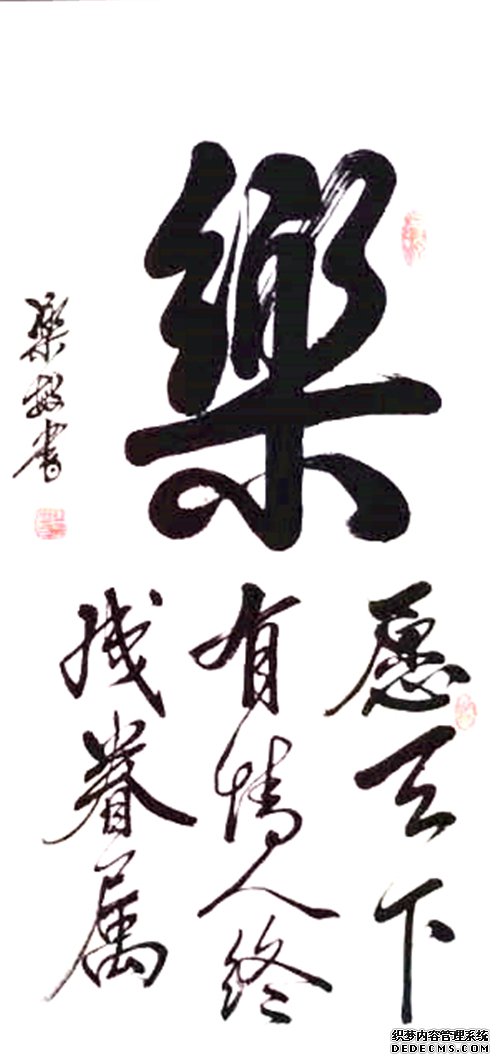 樂
愿天下
有情人终
成眷属
樂书
织梦内容管理系统
DEDECMS.COM